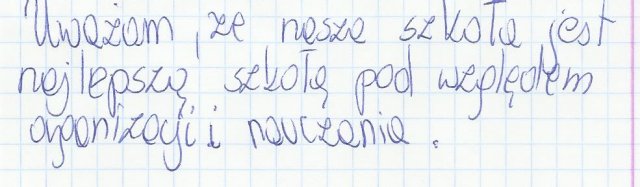 Uważam, że nasza szkoła jest
najlepszą szkołą pod względem
organizacji i nauczania.